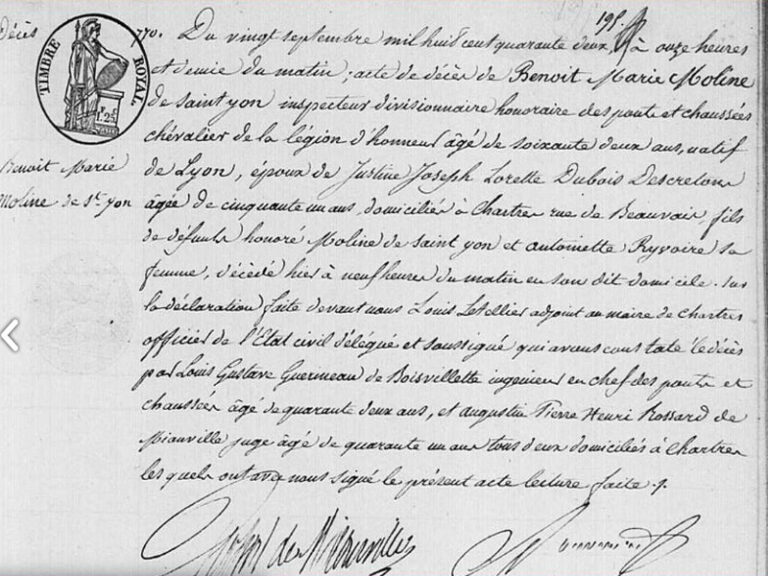 195.
Décès
TIMBRE ROYAL
1.F 25
770. Du vingt septembre mil huit cent quarante deux, à onze heures
et demie du matin; acte de décès de Benoit Marie Moline
de saint yon inspecteur divisionnaire honoraire des ponts et chaussées
chevalier de la légion d'honneur âgé de soixante deux ans, natif
Benoit Marie
de Lyon, époux de Justine Joseph Lorette Dubois Descretons
Moline de St. yon
âgée de cinquante un ans, domiciliés à Chartres rue de Beauvais, fils
de défunts honoré Moline de saint yon et antoinette Ryvoire sa
femme, décédé hier à neuf heures du matin en son dit domicile. sur
la déclaration faite devant nous Louis Letellier adjoint au maire de Chartres
officier de l'Etat civil délégué et soussigné qui avons constaté le décès
par Louis Gustave Guerineau de Boisvillette ingénieur en chef des ponts et
chaussées âgé de quarante deux ans, et augustin Pierre Henri Rossard de
Mianville juge âgé de quarante un ans tous deux domiciliés à Chartres
les quels ont avec nous signé le présent acte lecture faite ./.
de Mianville